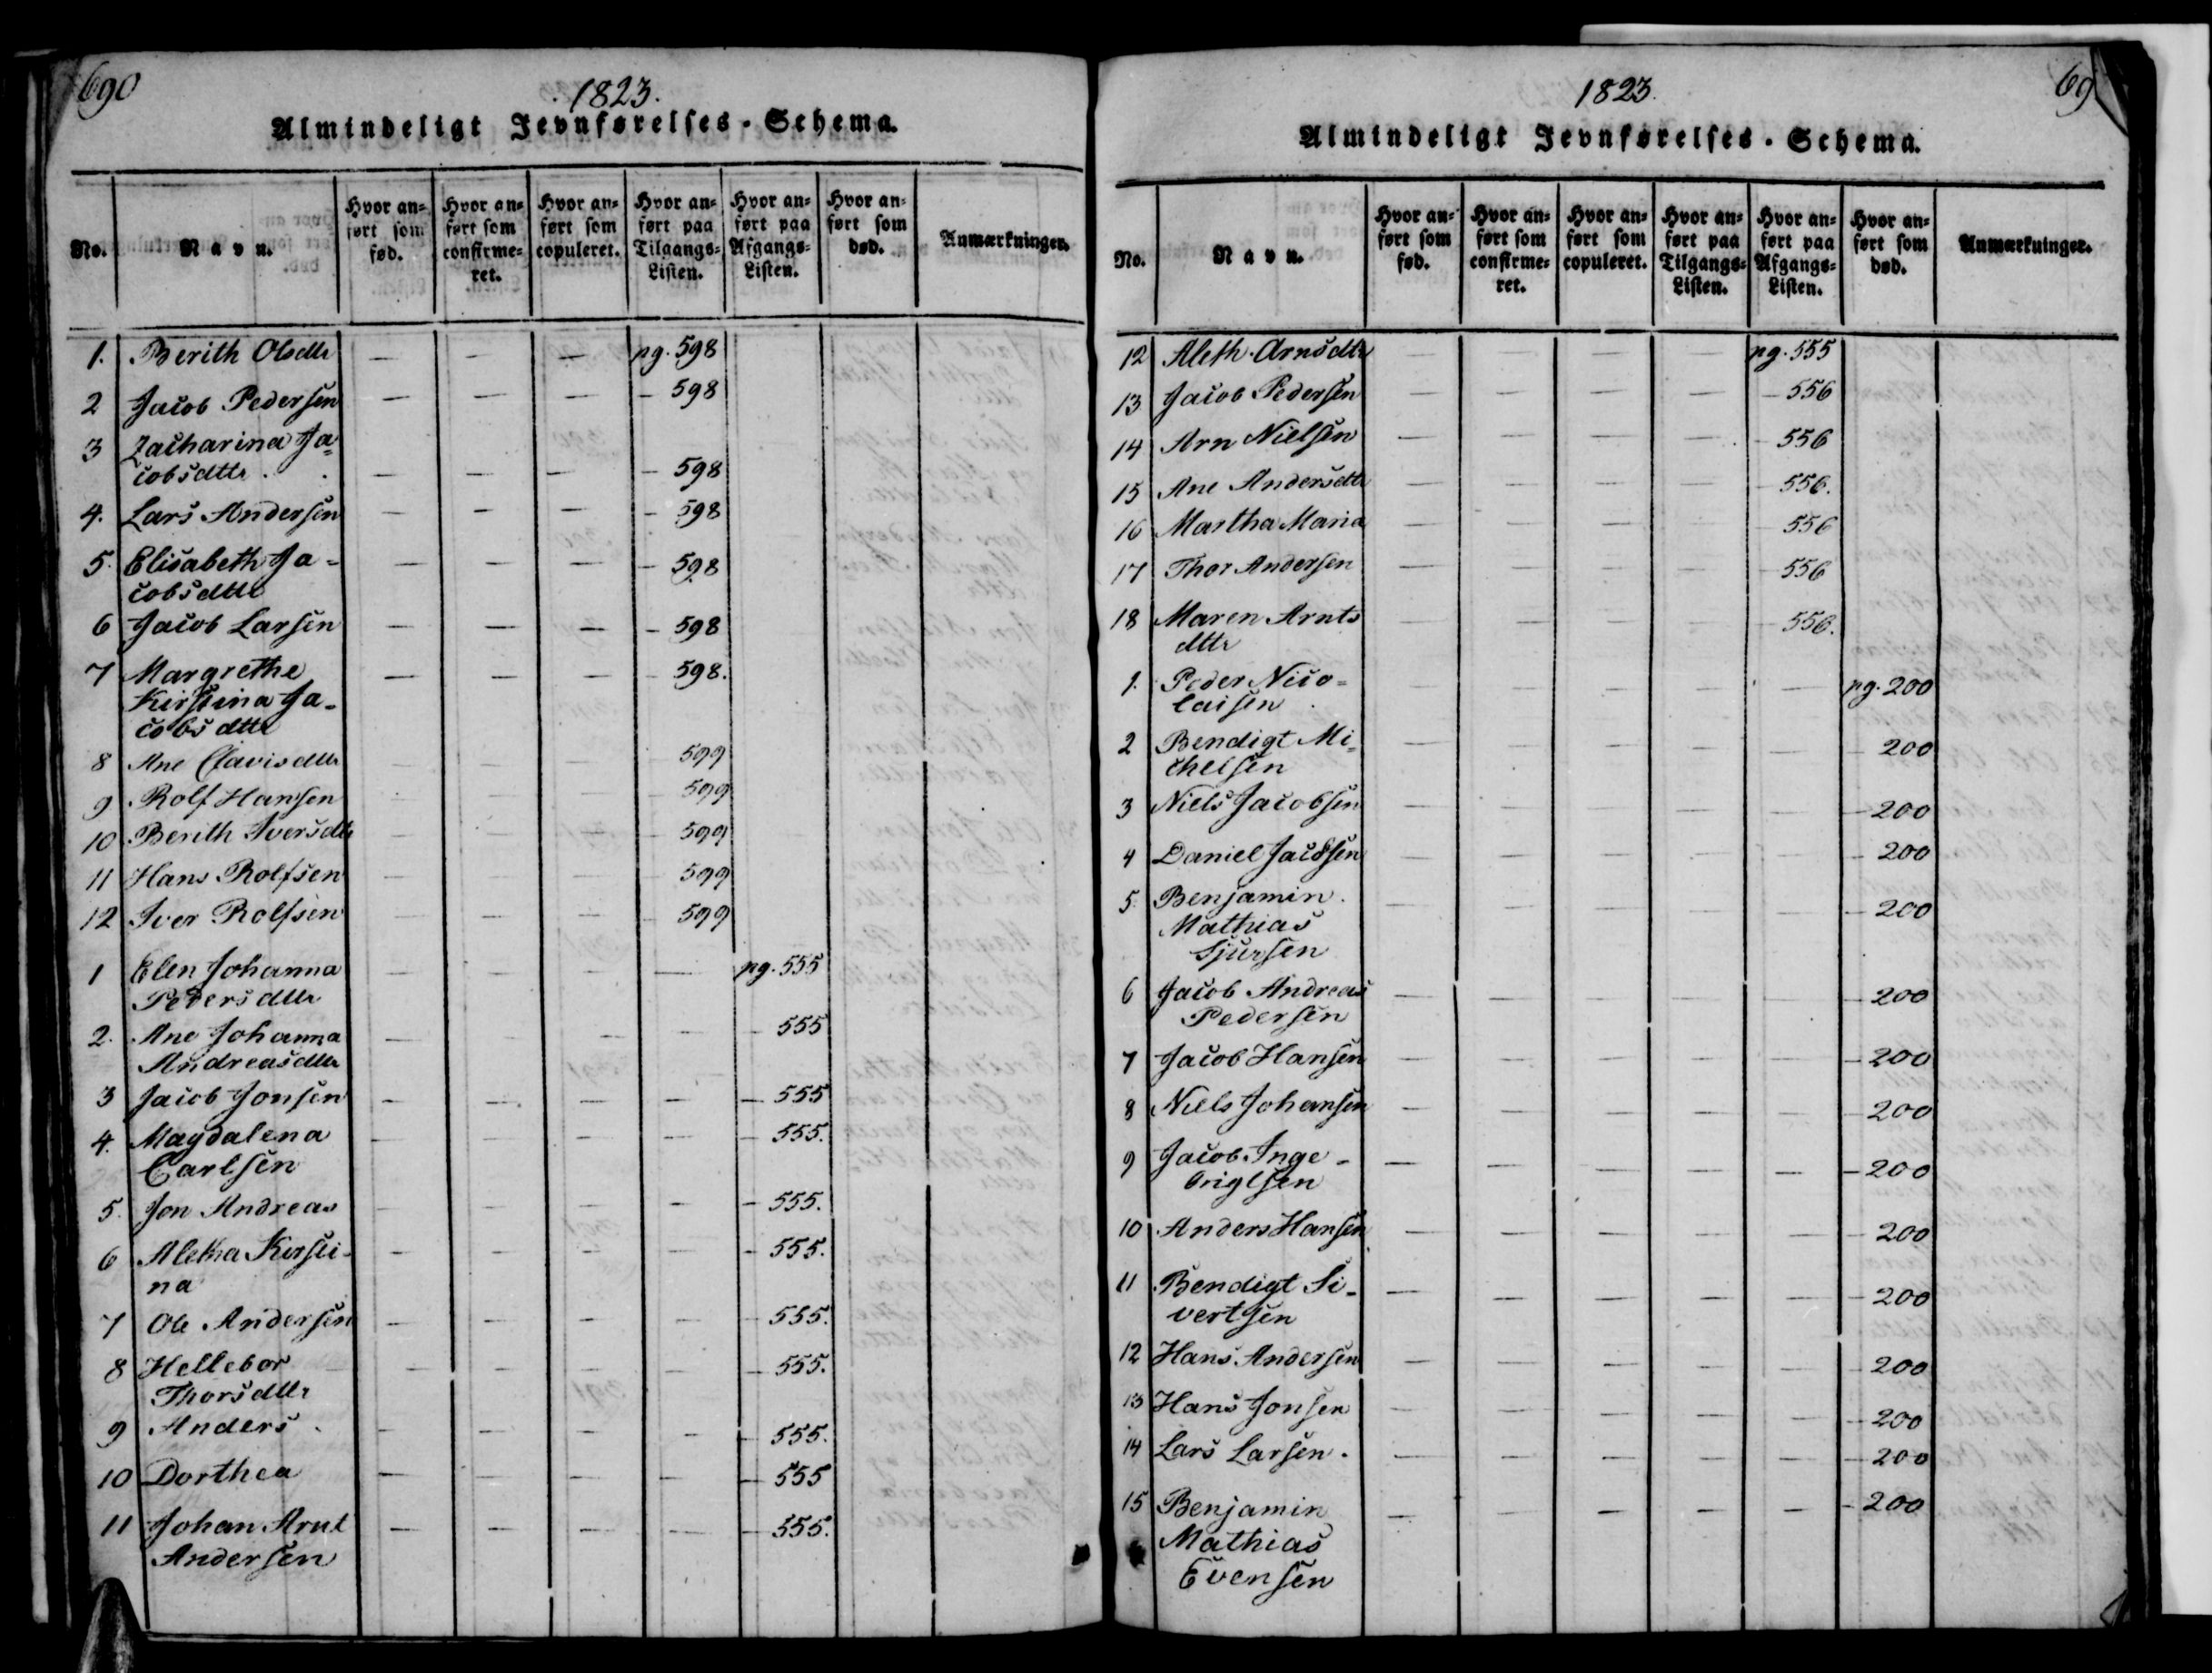 690
1823.
Almindeligt Jevnførelses-Schema.
No. Navn. Hvor anført som fød. Hvor anført som confirmeret. Hvor anført som copuleret. Hvor anført paa Tilgangs-Listen. Hvor anført paa Afgangs-Listen. Hvor anført som død. Anmærkninger.
1. Berith Olsdttr — — — pg. 598
2 Jacob Pedersen — — — — 598
3 Zacharina Ja=
cobsdttr. — — — — 598
4. Lars Andersen — — — — 598
5. Elisabeth Ja-
cobsdttr — — — — 598
6 Jacob Larsen — — — — 598
7 Margrethe
Kirstina Ja-
cobsdttr — — — — 598.
8 Ane Clavisdttr — — — 599
9 Rolf Hansen — — — 599
10 Berith Iversdttr — — — 599
11 Hans Rolfsen — — — 599
12 Iver Rolfsen — — — 599
1 Elen Johanna
Pedersdttr — — — — pg. 555
2. Ane Johanna
Andreasdttr — — — — — 555
3 Jacob Jonsen — — — — — 555
4. Magdalena
Carlsen — — — — — 555.
5. Jon Andreas — — — — — 555.
6 Aletha Kirsti-
na — — — — — 555.
7 Ole Andersen — — — — — 555.
8 Hellebor
Thorsdttr — — — — — 555.
9 Anders — — — — — 555.
10 Dorthea — — — — — 555
11 Johan Arnt
Andersen — — — — — 555.
69
1823.
Almindeligt Jevnførelses-Schema.
No. Navn. Hvor anført som fød. Hvor anført som confirmeret. Hvor anført som copuleret. Hvor anført paa Tilgangs-Listen. Hvor anført paa Afgangs-Listen. Hvor anført som død. Anmærkninger.
12 Aleth Arnsdttr — — — — pg. 555
13 Jacob Pedersen — — — — — 556
14 Arn Nielsen — — — — — 556
15 Ane Andersdttr — — — — — 556.
16 Martha Maria — — — — — 556
17 Thor Andersen — — — — — 556
18 Maren Arnts
dttr — — — — — 556.
1. Peder Nico=
laisen — — — — — pg. 200
2 Bendigt Mi=
chelsen — — — — — — 200
3 Niels Jacobsen — — — — — — 200
4 Daniel Jacobsen — — — — — — 200
5. Benjamin
Mathias
Sjursen — — — — — — 200
6 Jacob Andreas
Pedersen — — — — — — 200
7 Jacob Hansen — — — — — — 200
8 Niels Johansen — — — — — — 200
9 Jacob Inge-
brigtsen — — — — — — 200
10 Anders Hansen — — — — — — 200
11 Bendigt Si-
vertsen — — — — — — 200
12 Hans Andersen — — — — — — 200
13 Hans Jonsen — — — — — — 200
14 Lars Larsen. — — — — — — 200
15 Benjamin
Mathias
Evensen — — — — — — 200